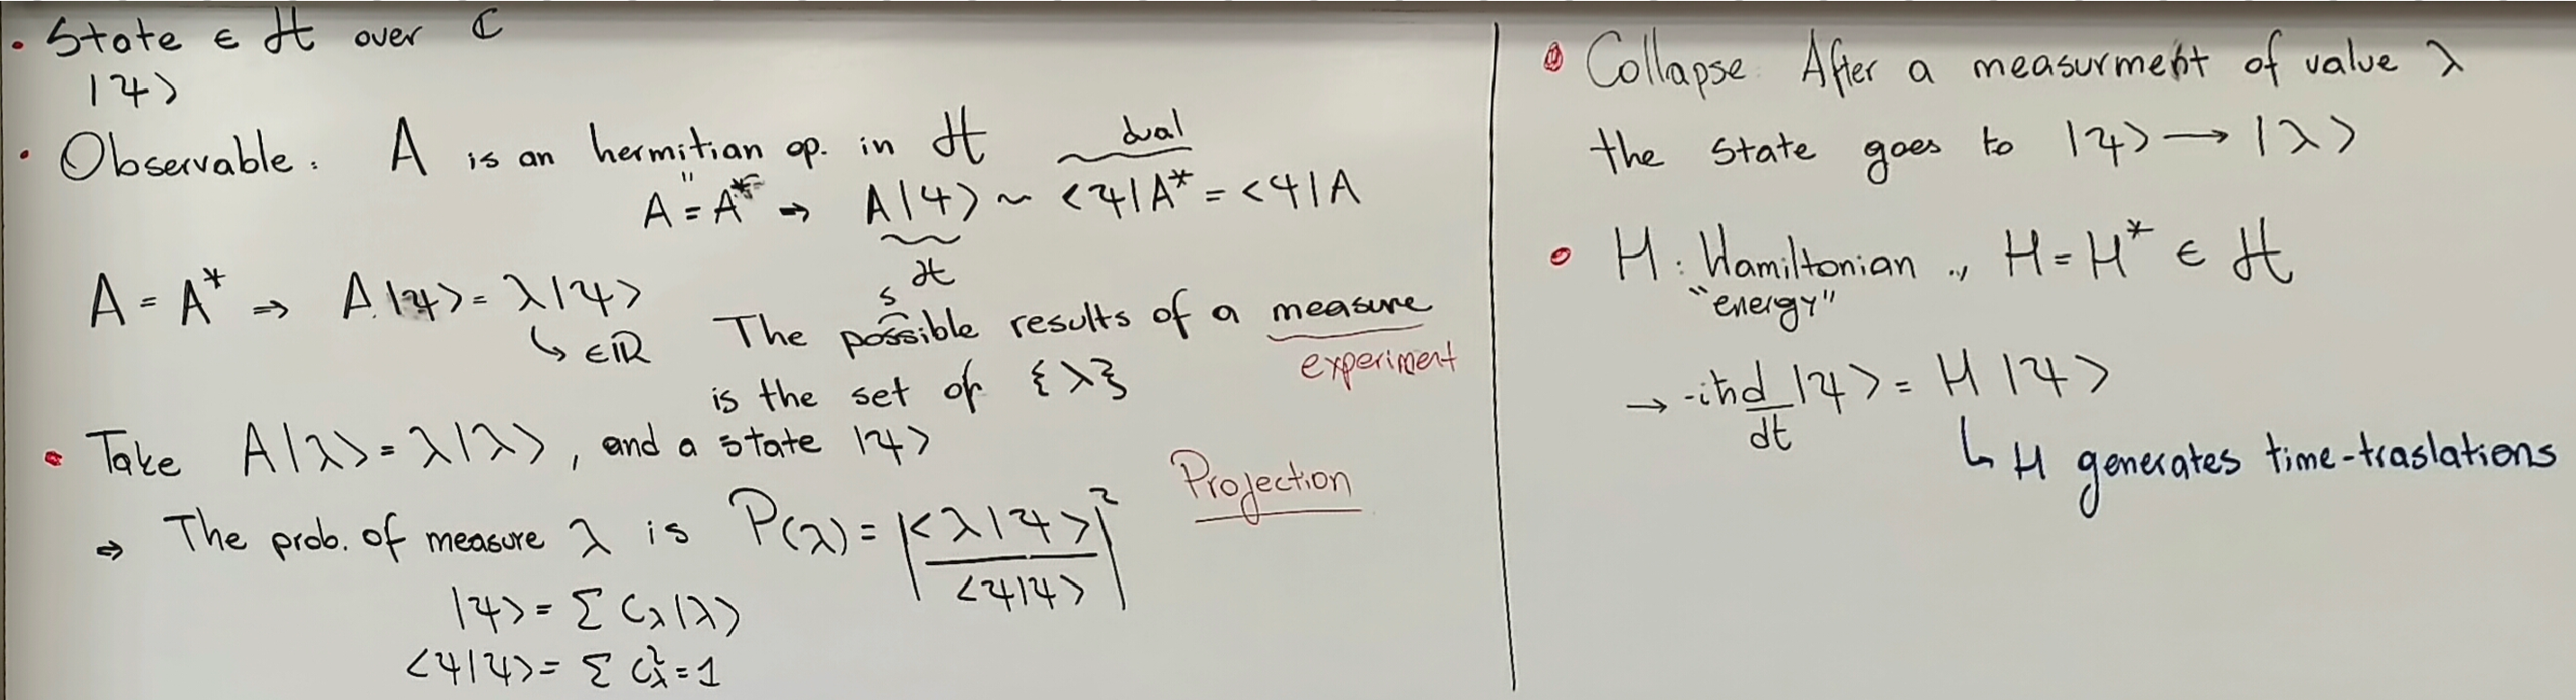 • State ∈ ℋ over ℂ
|ψ⟩
• Observable: A is an hermitian op. in ℋ dual
A = A* ⇒ A|ψ⟩ ~ ⟨ψ|A* = ⟨ψ|A
ℋ
A = A* ⇒ A|ψ⟩ = λ|ψ⟩
↳ ∈ ℝ
The possible results of a measure
s
experiment
is the set of {λ}
• Take A|λ⟩ = λ|λ⟩, and a state |ψ⟩
⇒ The prob. of measure λ is P(λ) = |⟨λ|ψ⟩ / ⟨ψ|ψ⟩|²
Projection
|ψ⟩ = Σ C_λ|λ⟩
⟨ψ|ψ⟩ = Σ C_λ² = 1
• Collapse: After a measurment of value λ
the state goes to |ψ⟩ → |λ⟩
• H: Hamiltonian ., H = H* ∈ ℋ
"energy"
→ -iħ d/dt |ψ⟩ = H |ψ⟩
↳ H generates time-traslations